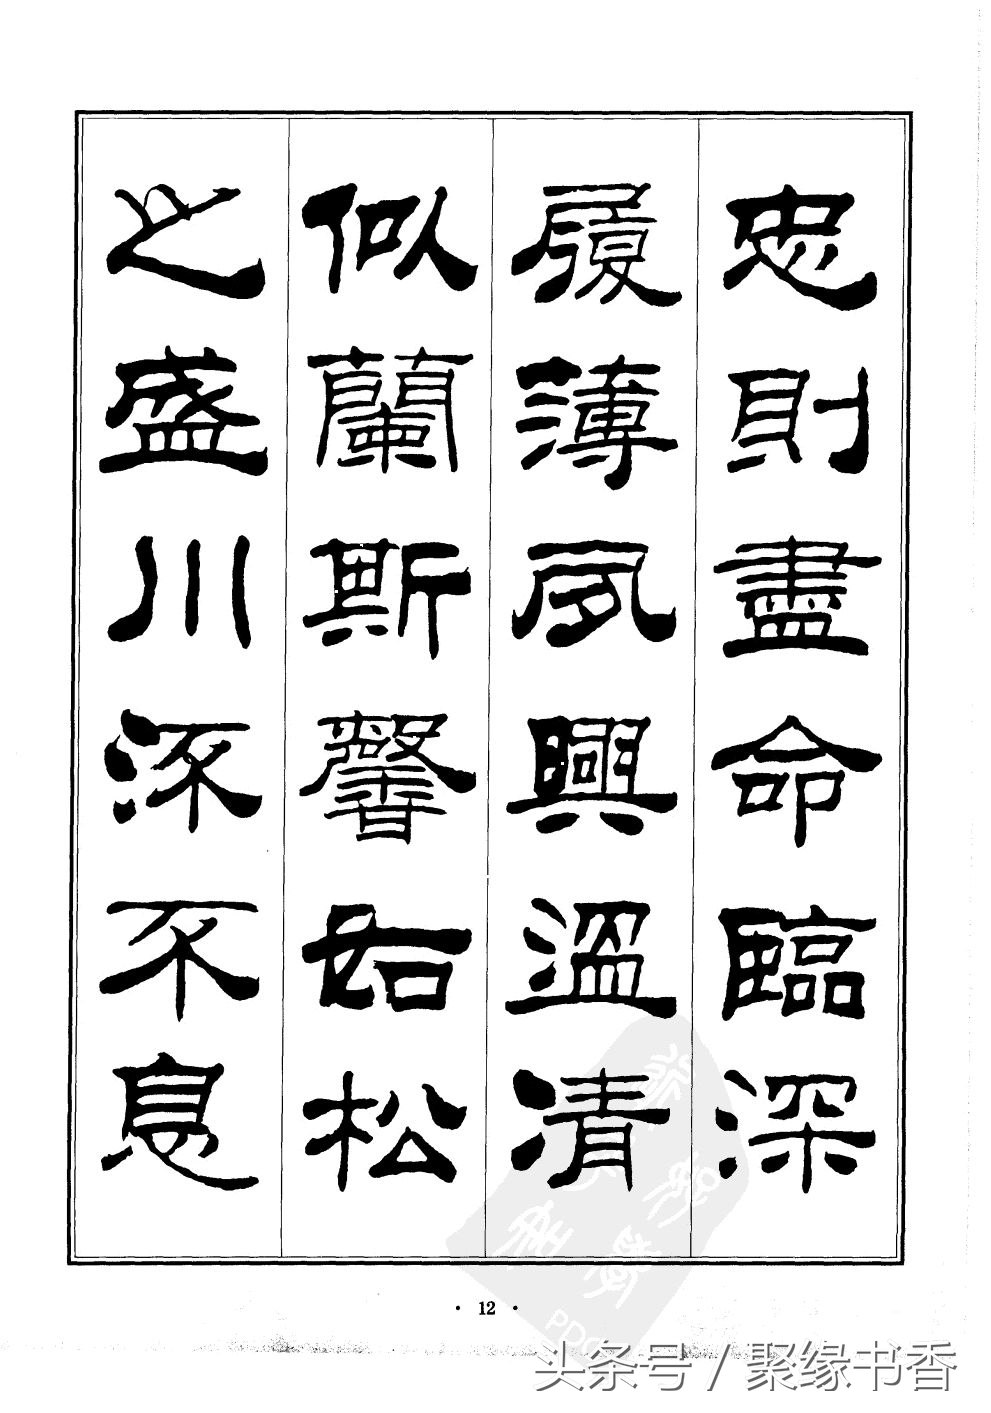 忠則盡命臨深
履薄夙興溫凊
似蘭斯馨如松
之盛川流不息
· 12 ·
头条号 / 聚缘书香